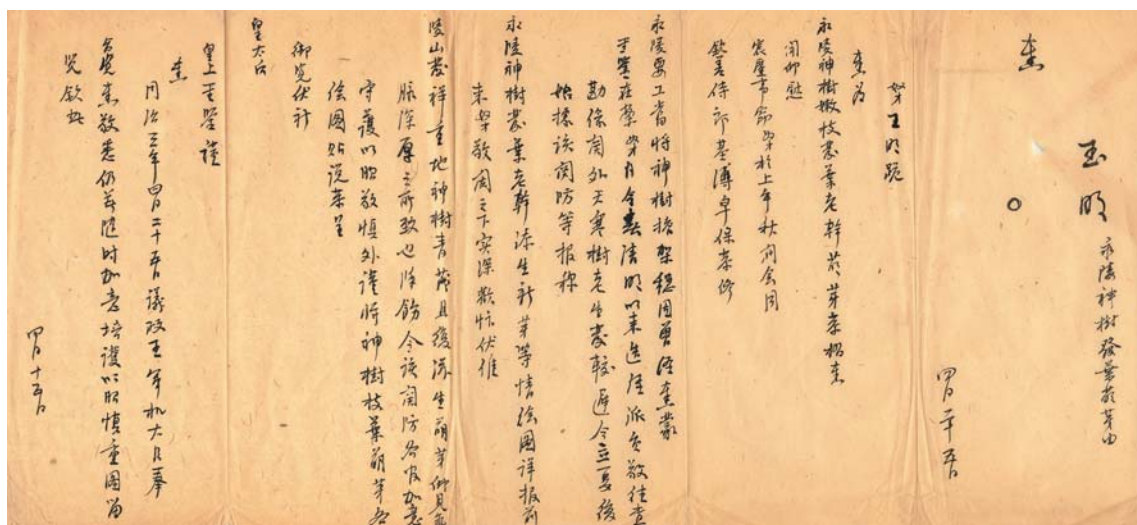 玉明 永陵神樹發葉發芽由
四月二十五日
奏
奴才玉明跪
奏為
永陵神樹嫩枝發葉老幹發芽恭摺奏
聞仰慰
宸廑事竊奴才於上年秋間會同
欽差侍郎基溥卓保恭修
永陵要工當將神樹撐架穩固曾經奏蒙
聖鑒在案清明以來迭經派員敬往查
勘係關外天寒樹老生發較遲今立夏後
始據該關防等報稱
永陵神樹發葉老幹添生新芽等情繪圖詳報前
來奴才敬閱之下實深歡忭伏維
陵山發祥重地神樹青茂且復添生萌芽仰見氣
脈深厚之所致也除飭令該關防各官加意
守護以昭敬慎外謹將神樹枝葉萌芽各
繪圖貼說恭呈
御覽伏祈
皇太后
皇上聖鑒謹
奏
同治三年四月二十五日議政王軍機大臣奉
旨覽奏敬悉仍著隨時加意培護以昭慎重圖留
覽欽此
四月十五日